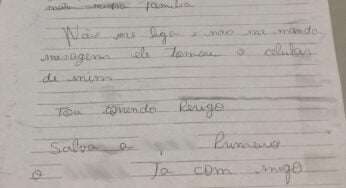 mata minha familia
Não me liga e não me manda
mesagem ele Tomou o celular
de mim
Tou corendo Perigo
Salva o , Rumeno
o Ta com migo